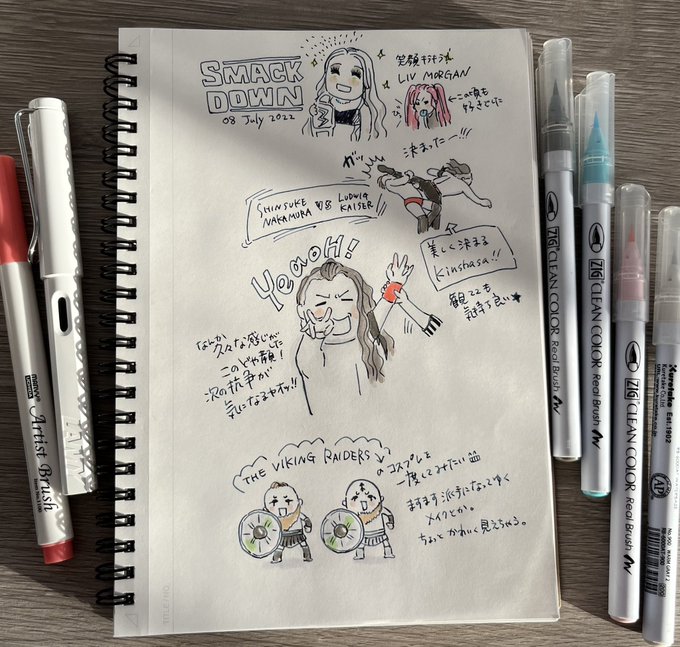 SMACK
DOWN
08 July 2022
笑顔キラキラ
LIV MORGAN
←この頃も
好きでした
ガッ
決まったー!!!
SHINSUKE
NAKAMURA
VS
LUDWIG
KAISER
美しく決まる
Kinshasa!!
観てても
気持ち良い
YeaoH!
なんか
久々な感じがした
このどや顔!
次の抗争が
気になるヤオッ!!
THE VIKING RAIDERS
のコスプレを
一度してみたい
ますます派手になってゆく
メイクとか。
ちょっとかわいく見えちゃう。
marvy
Artist Brush
ZIG CLEAN COLOR Real Brush
ZIG CLEAN COLOR Real Brush
ZIG CLEAN COLOR Real Brush
Kuretake Est.1902
Kuretake Co.,Ltd.
AP